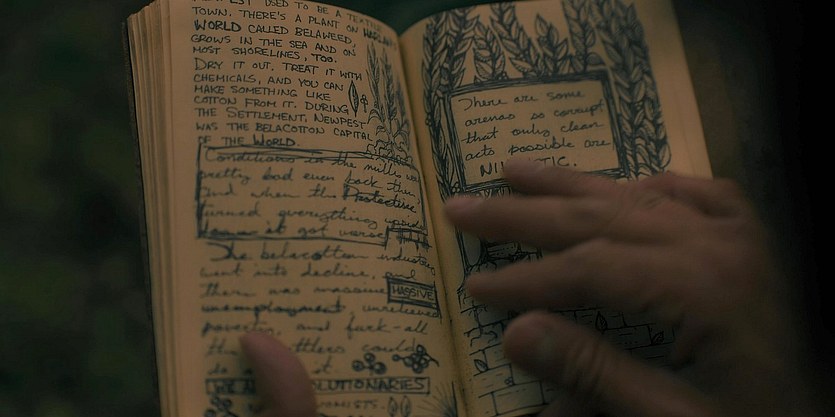 USED TO BE A
TOWN. THERE'S A PLANT ON
WORLD CALLED BELAWEED,
GROWS IN THE SEA AND ON
MOST SHORELINES, TOO.
DRY IT OUT, TREAT IT WITH
CHEMICALS, AND YOU CAN
MAKE SOMETHING LIKE
COTTON FROM IT. DURING
THE SETTLEMENT, NEWPEST
WAS THE BELACOTTON CAPITAL
OF THE WORLD.
Conditions in the mills was
pretty bad even back then
and when the
turned everything
it got worse
The belacotton industry
went into decline, and
There was massive MASSIVE
unemployment, unrelieved
poverty, and fuck-all
the could
do it
WE
There are some
arenas so corrupt
that only clean
acts possible are